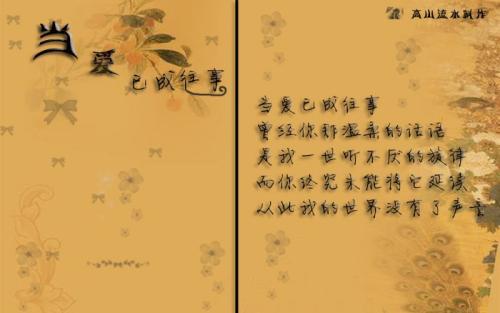 当
爱
已成往事
高山流水制作
当爱已成往事
曾经你那温柔的话语
是我一世听不厌的旋律
而你终究未能将它延续
从此我的世界没有了声音